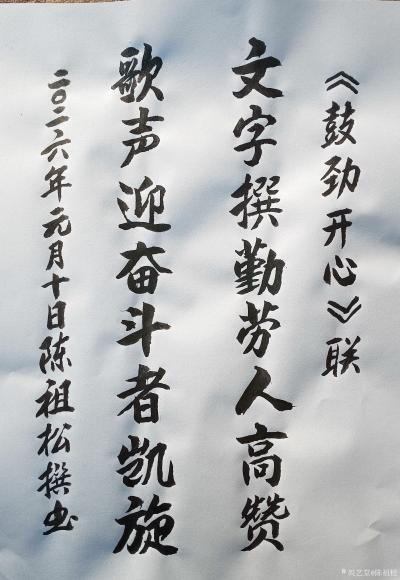 《鼓劲开心》联
文字撰勤劳人高赞
歌声迎奋斗者凯旋
二〇二六年元月十日陈祖松撰书